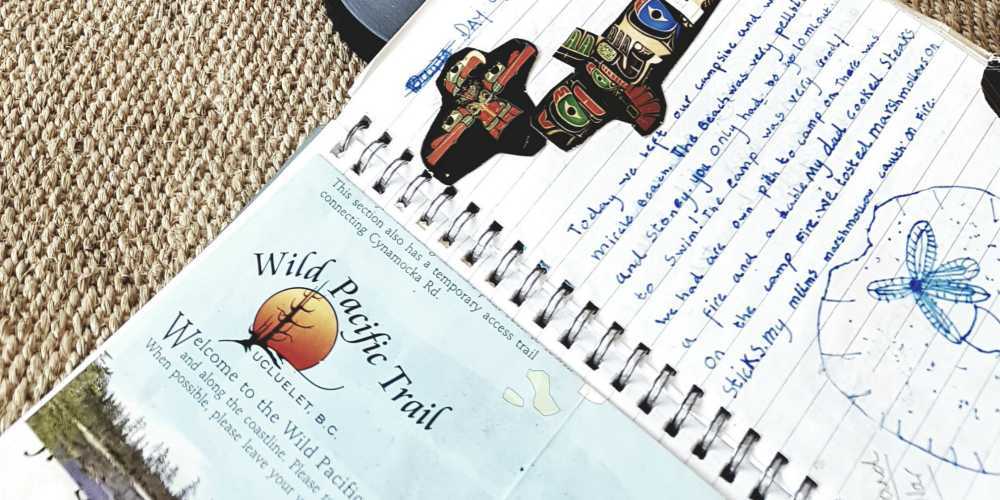 This section also has a temporary access trail
connecting Cynamocka Rd.
Wild Pacific Trail
UCLUELET, B.C.
Welcome to the Wild Pacific
and along the coastline. Please
When possible, please leave your
DAY
Today we left our campsine and
miracle Beach. The Beach was very
and Stoney, you only had to go 10
to Swim. The camp was very Good
we had are own pith to camp on There was
a fire and a table My dad cooked Steaks
on the camp fire. we tosted marshmallows on
sticks. my mums marshmallow caught on fire.